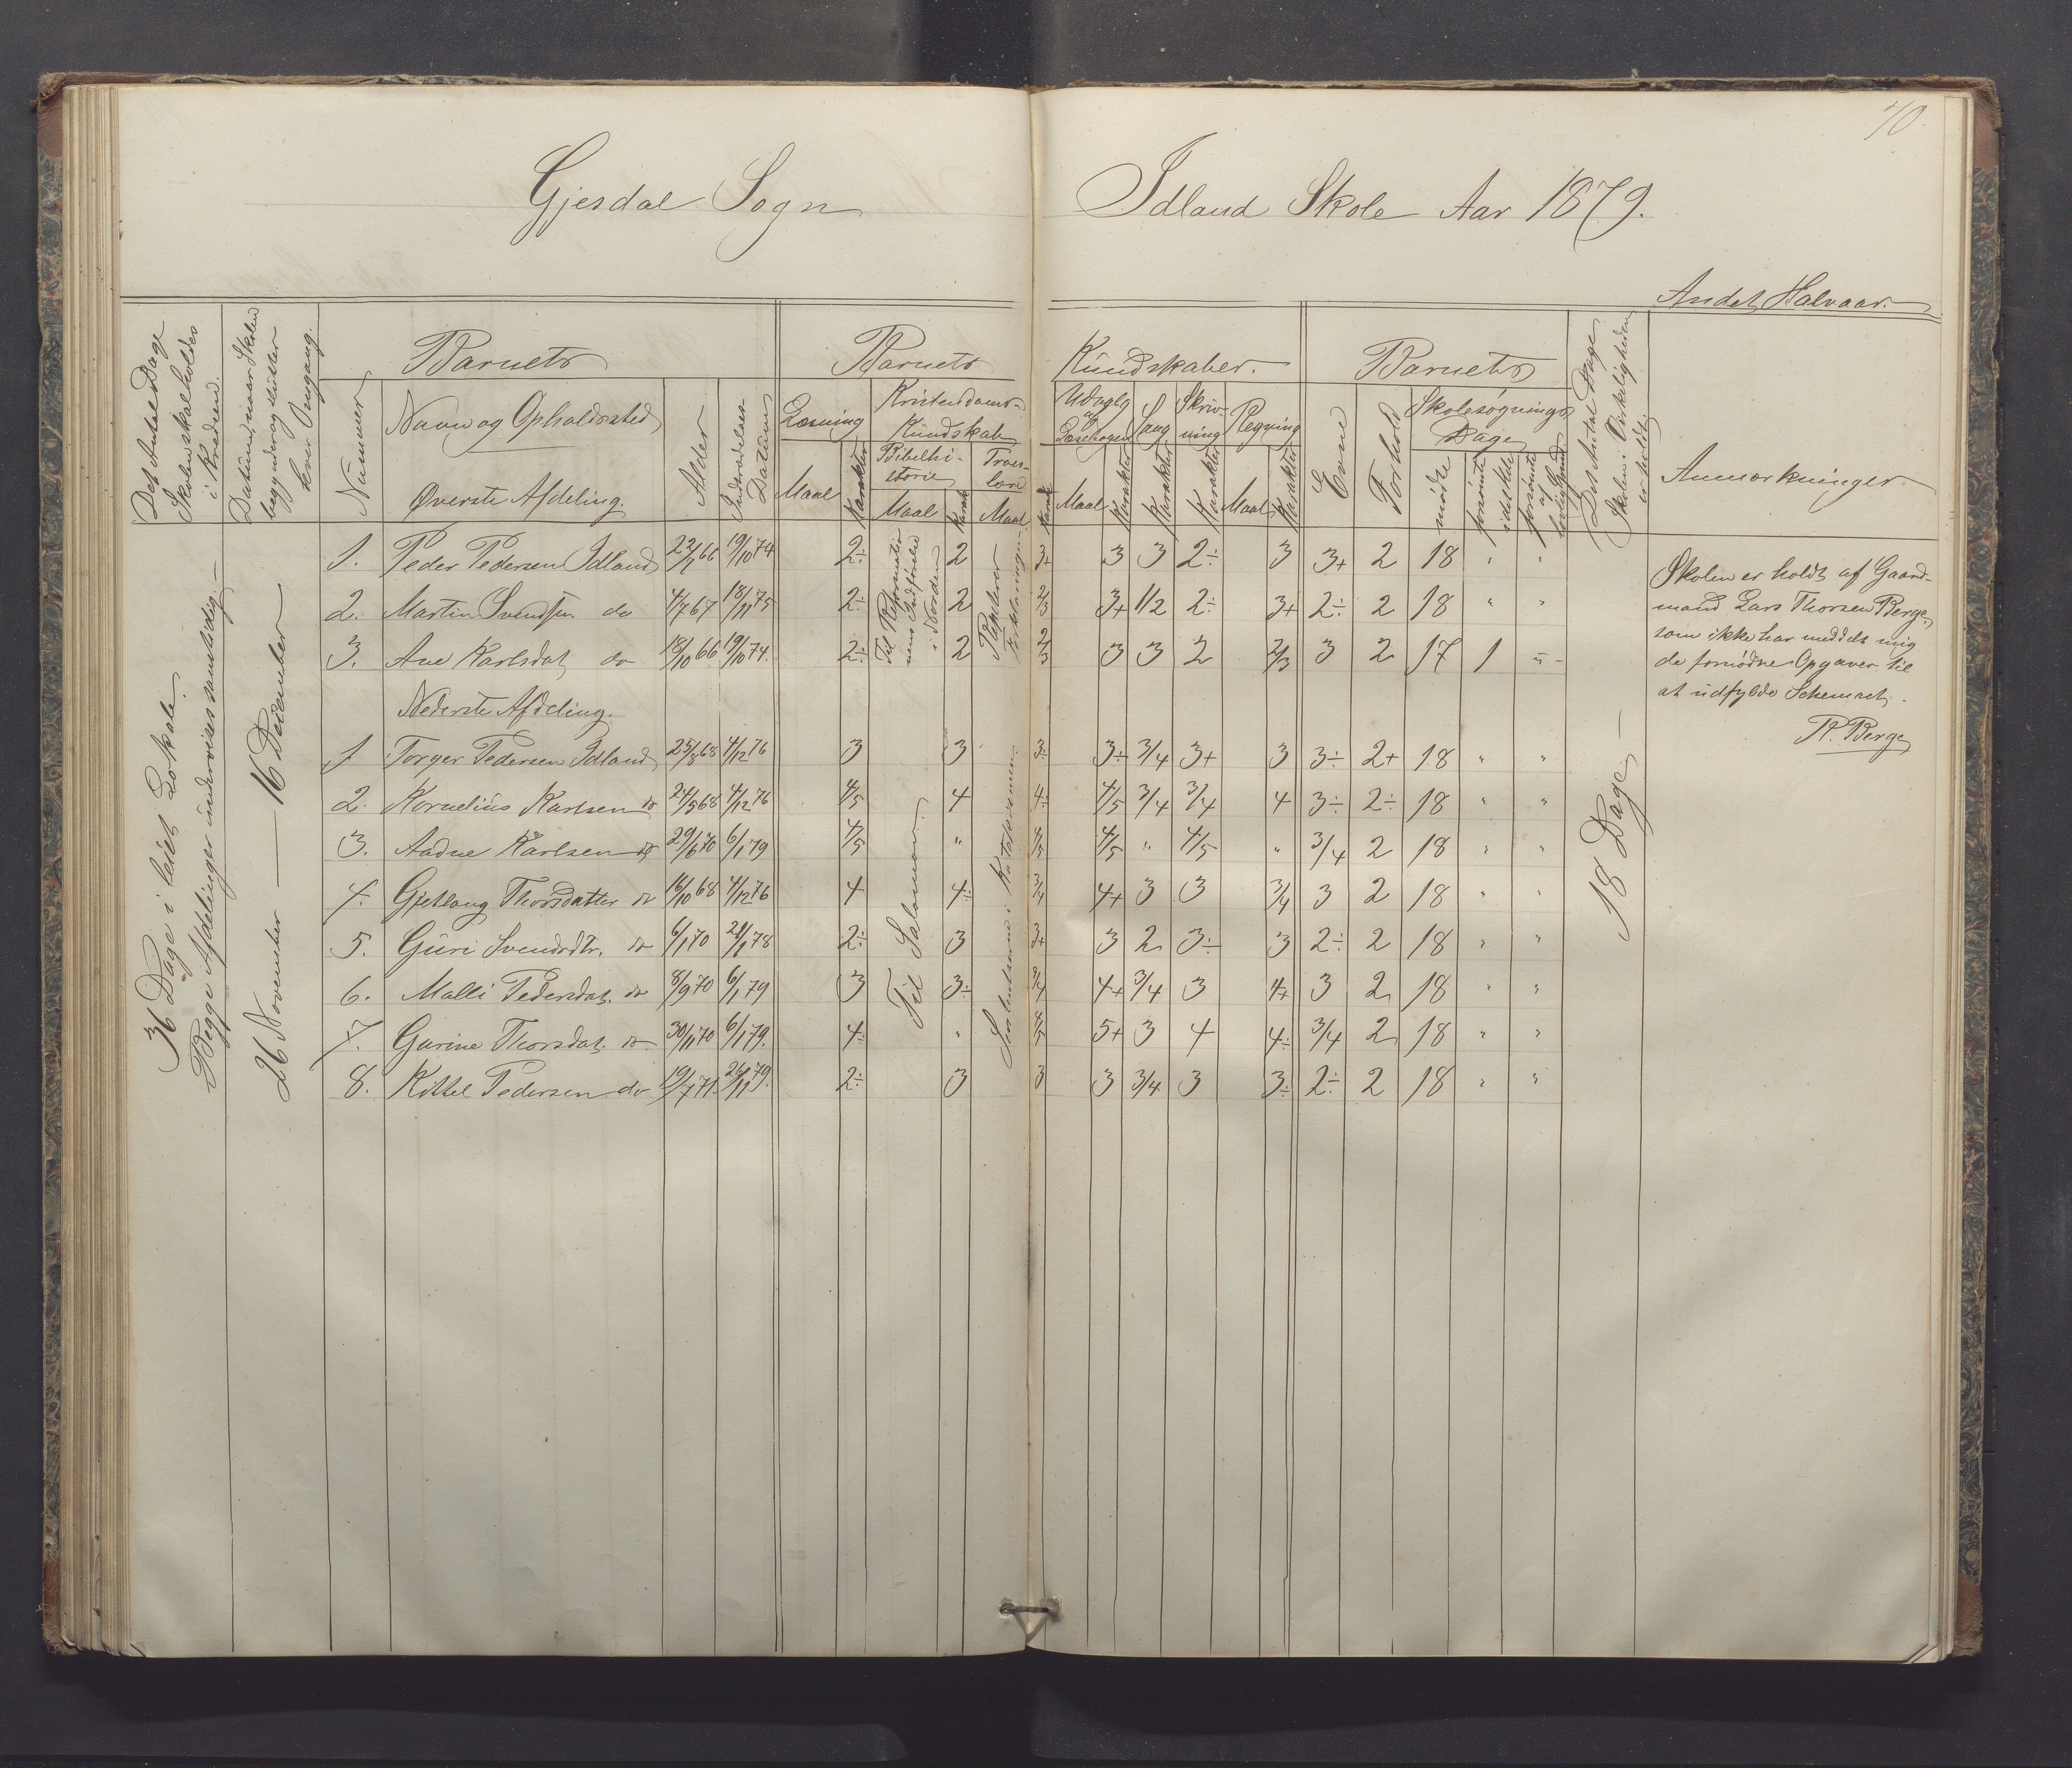 70.
Gjesdal Sogn
Idland Skole Aar 1879.
Andet Halvaar.
Det Antal Dage
Skolen skal holdes
i Kredsen.
Datum, naar Skolen
begynder og slutter
hver Omgang.
Nummer
Barnets
Navn og Opholdssted
Øverste Afdeling.
Alder
Indtrædelses-
Datum
Barnets
Kundskaber.
Læsning
Maal
Karakter
Kristendoms-
Kundskab
Bibelhi-
storie
Maal
Karak
Troes-
lære
Maal
Karak
Udvalg
af
Læsebogen
Maal
Karakter
Sang
Karakter
Skriv-
ning
Karakter
Regning
Maal
Karakter
Barnets
Evne
Forhold
Skolesøgnings
Dage
mødte
forsømte
i det Hele
forsømte
af
lovlig Grund
Det Antal Dage
Skolen i Virkeligheden
er holdt.
Anmærkninger
36 Dage i leiet Lokale.
Begge Afdelinger undervises samtidig.
26 November — 16 December
1. Peder Pedersen Idland 22/1 66 19/10 74 2÷ 2 3+ 3 3 2÷ 3 3+ 2 18 " "
2. Martin Svendsen do 4/7 67 18/11 75 2÷ 2 2/3 3+ 1/2 2÷ 3+ 2÷ 2 18 " "
3. Ane Karlsdat do 18/10 66 19/10 74. 2÷ 2 2/3 3 3 2 2/3 3 2 17 1 "
Til Reformatio
nens Indførelse
i Norden
Forklaringen
Nederste Afdeling.
1 Torger Pedersen Idland 25/8 68 4/12 76 3 3 3÷ 3÷ 3/4 3+ 3 3÷ 2+ 18 " "
2. Kornelius Karlsen do 24/5 68 4/12 76 4/5 4 4÷ 4/5 3/4 3/4 4 3÷ 2÷ 18 " "
3. Aadne Karlsen do 29/6 70 6/1 79 4/5 " 4/5 4/5 " 4/5 " 3/4 2 18 " "
4. Gjetlaug Thorsdatter do 16/10 68 4/12 76 4 4÷ 3/4 4+ 3 3 3/4 3 2 18 " "
5. Guri Svendsdtr. do 6/1 70 21/1 78 2÷ 3 3+ 3 2 3÷ 3 2÷ 2 18 " "
6. Malli Pedersdat. do 8/9 70 6/1 79 3 3÷ 3/4 4+ 3/4 3 4+ 3 2 18 " "
7. Gurine Thorsdat. do 30/11 70 6/1 79. 4÷ " 4/5 5+ 3 4 4÷ 3/4 2 18 " "
8. Kittel Pedersen do 19/7 71. 26/11 79. 2÷ 3 3 3 3/4 3 3÷ 2÷ 2 18 " "
Til Salomon.
i Katekismen.
18 Dage
Skolen er holdt af Gaard-
mand Lars Thorsen Berge,
som ikke har meddelt mig
de fornødne Opgaver til
at udfylde Schemaet.
P. Berge